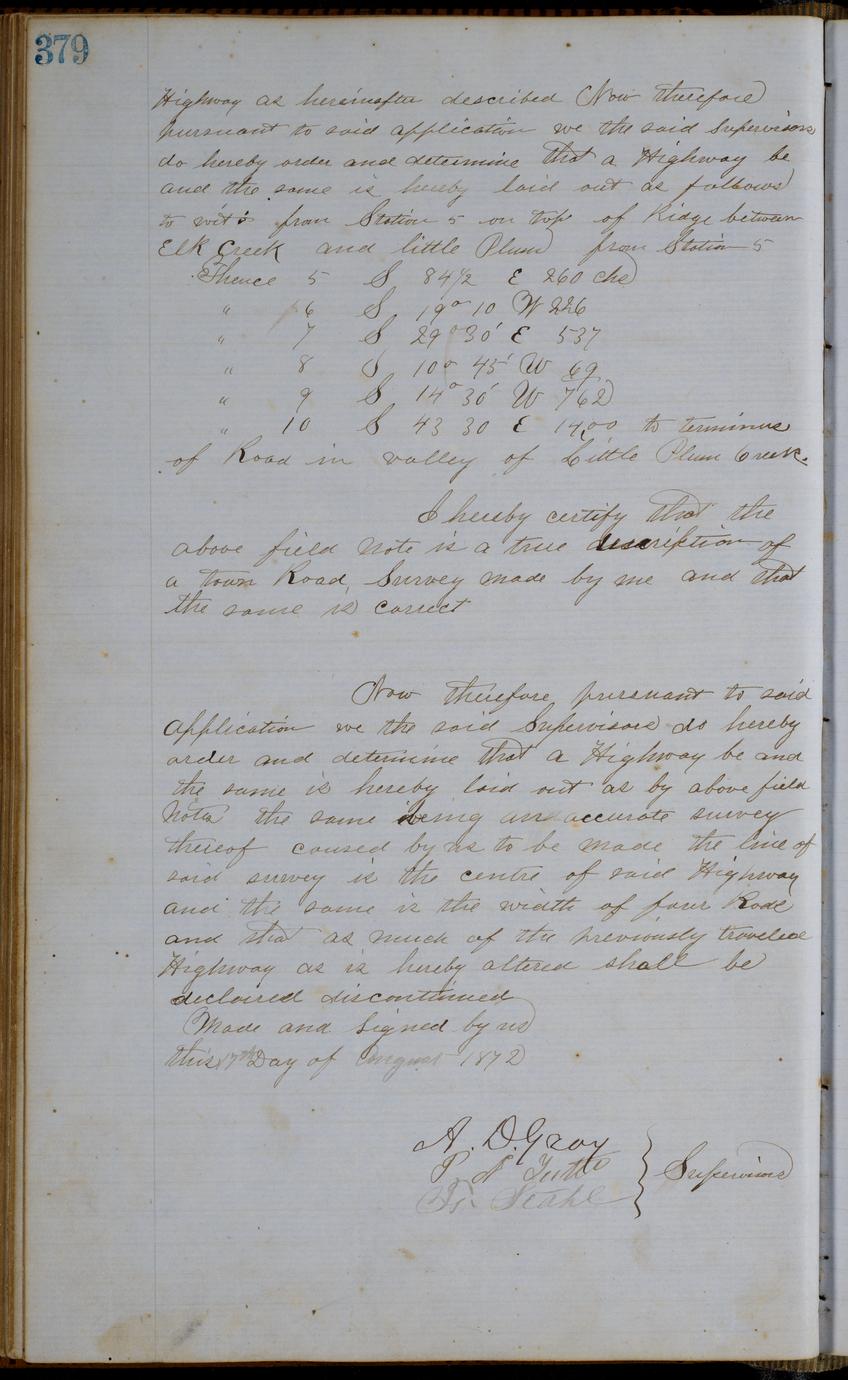 379
Highway as hereinafter described Now therefore
pursuant to said application we the said Supervisors
do hereby order and determine that a Highway be
and the same is hereby laid out as follows
to wit: from Station 5 on top of Ridge between
Elk Creek and little Plum from Station 5
Thence 5 S 84 1/2 E 260 chs
" 6 S 19° 10 W 226
" 7 S 29° 30' E 537
" 8 S 10° 45' W 69
" 9 S 14° 30' W 762
" 10 S 43 30 E 14,00 to terminus
of Road in valley of Little Plum Creek.
I hereby certify that the
above field Note is a true description of
a town Road Survey made by me and that
the same is correct
Now therefore pursuant to said
application we the said Supervisors do hereby
order and determine that a Highway be and
the same is hereby laid out as by above field
Notes the same being an accurate survey
thereof caused by us to be made the line of
said survey is the centre of said Highway
and the same is the width of four Rods
and that as much of the previously traveled
Highway as is hereby altered shall be
declaired discontinued
Made and Signed by us
this 17th Day of August 1872
A. D. Gray
P. Supervisors
Stahl